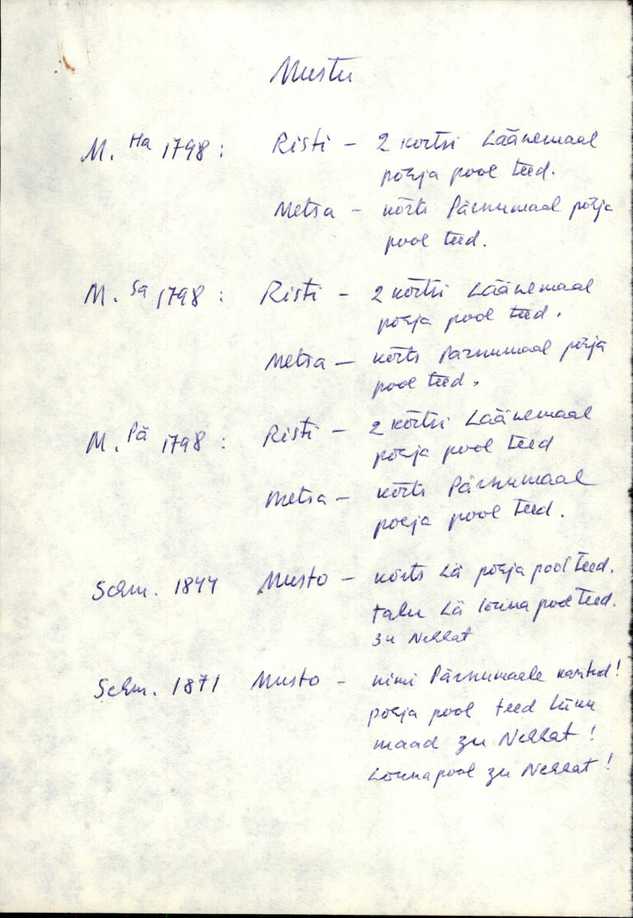 Mustu
M. Ha 1798: Risti – 2 kõrtsi Läänemaal
põhja pool teed.
Metsa – kõrts Pärnumaal põhja
pool teed.
M. Sa 1798: Risti – 2 kõrtsi Läänemaal
põhja pool teed.
Metsa – kõrts Pärnumaal põhja
pool teed.
M. Pä 1798: Risti – 2 kõrtsi Läänemaal
põhja pool teed
Metsa – kõrts Pärnumaal
põhja pool teed.
Schm. 1844 Musto – kõrts Lä põhja pool teed.
talu Lä lõuna pool teed.
zu Nehhat
Schm. 1871 Musto – nimi Pärnumaale kantud!
põhja pool teed
maad zu Nehhat!
Lõuna pool zu Nehhat!